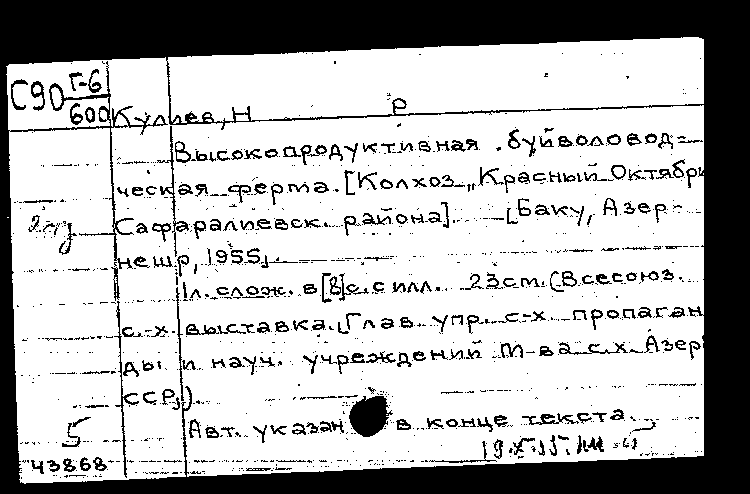 С90 Г-6
600
Кулиев, Н Р
Высокопродуктивная буйволовод=
ческая ферма. [Колхоз „Красный Октябрь
Сафаралиевск. района]. [Баку, Азер-
нешр, 1955].
1л. слож. в [8] с. с илл. 23см. (Всесоюз.
с.-х. выставка. [Глав. упр. с-х. пропаган
ды и науч. учреждений М-ва с.х. Азерб
ССР]).
Авт. указан в конце текста.
5
43868